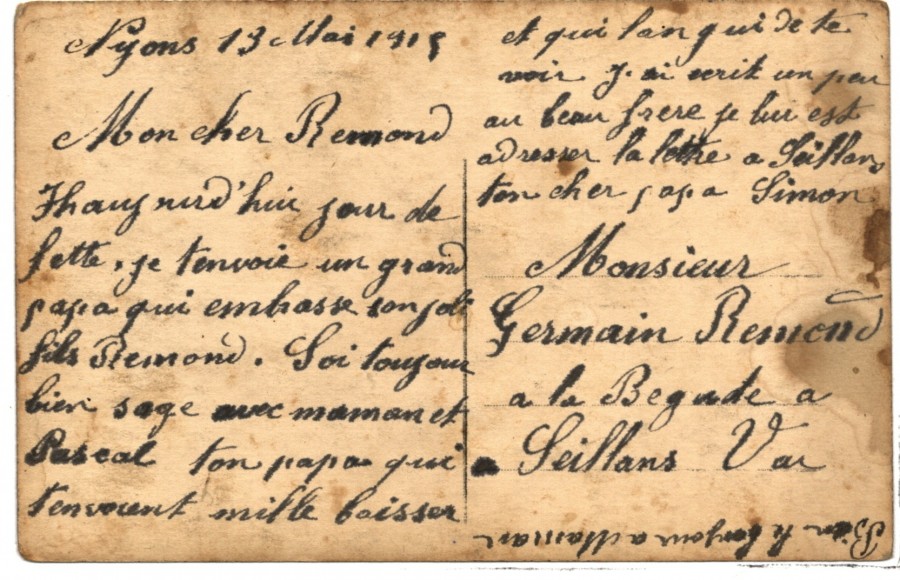 Nyons 13 Mai 1915
Mon cher Remond
Jhaujourd'hui jour de
fette, je tenvoie un grand
papa qui embasse son joli
fils Remond. Soi toujour
bien sage avec maman et
Pascal ton papa qui
tenvoient mille baisser
et qui langui de te
voir J-ai ecrit un peu
au beau frere je lui est
adresser la lettre a Seillans
ton cher papa Simon
Monsieur
Germain Remond
a la Begude a
Seillans Var
Bien le bonjour a Maman